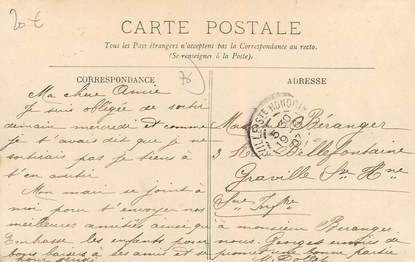 20 €
CARTE POSTALE
Tous les Pays étrangers n'acceptent pas la Correspondance au recto.
(Se renseigner à la Poste).
CORRESPONDANCE
Ma chère Amie
Je suis obligée de sortir
demain mercredi et comme
je t'avais dit que je ne
sortirais pas je tiens à
t'en avertir
Mon mari se joint à
moi pour t'envoyer nos
meilleures amitiés ainsi qu'à monsieur Béranger.
Embrasse les enfants pour nous. Georges envoie de
bons baisers à ses amis et se promet une bonne partie
pour jeudi
M. Dollet
ADRESSE
Béranger
3 Bellefontaine
Graville Ste Hne
Sne Infre